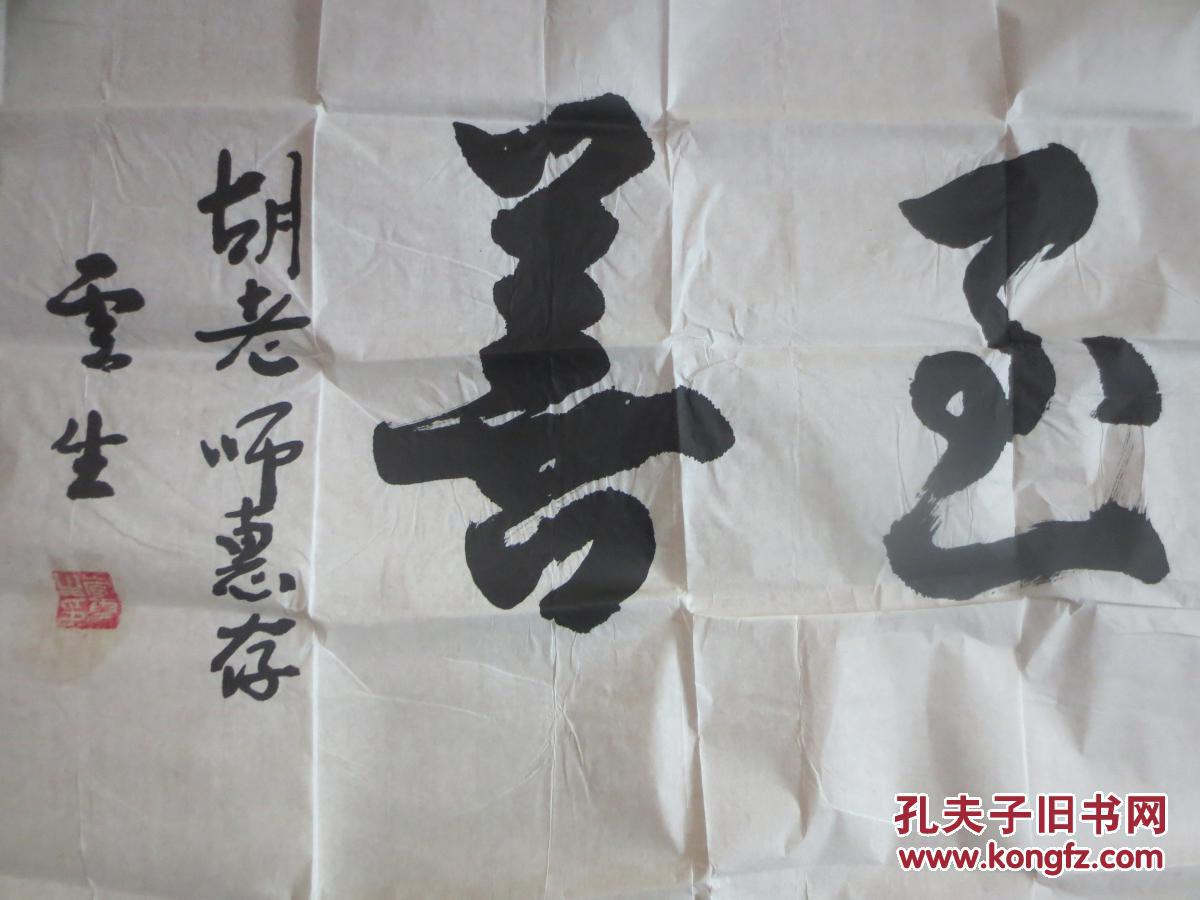 至善
胡老师惠存
雲生
孔夫子旧书网
www.kongfz.com